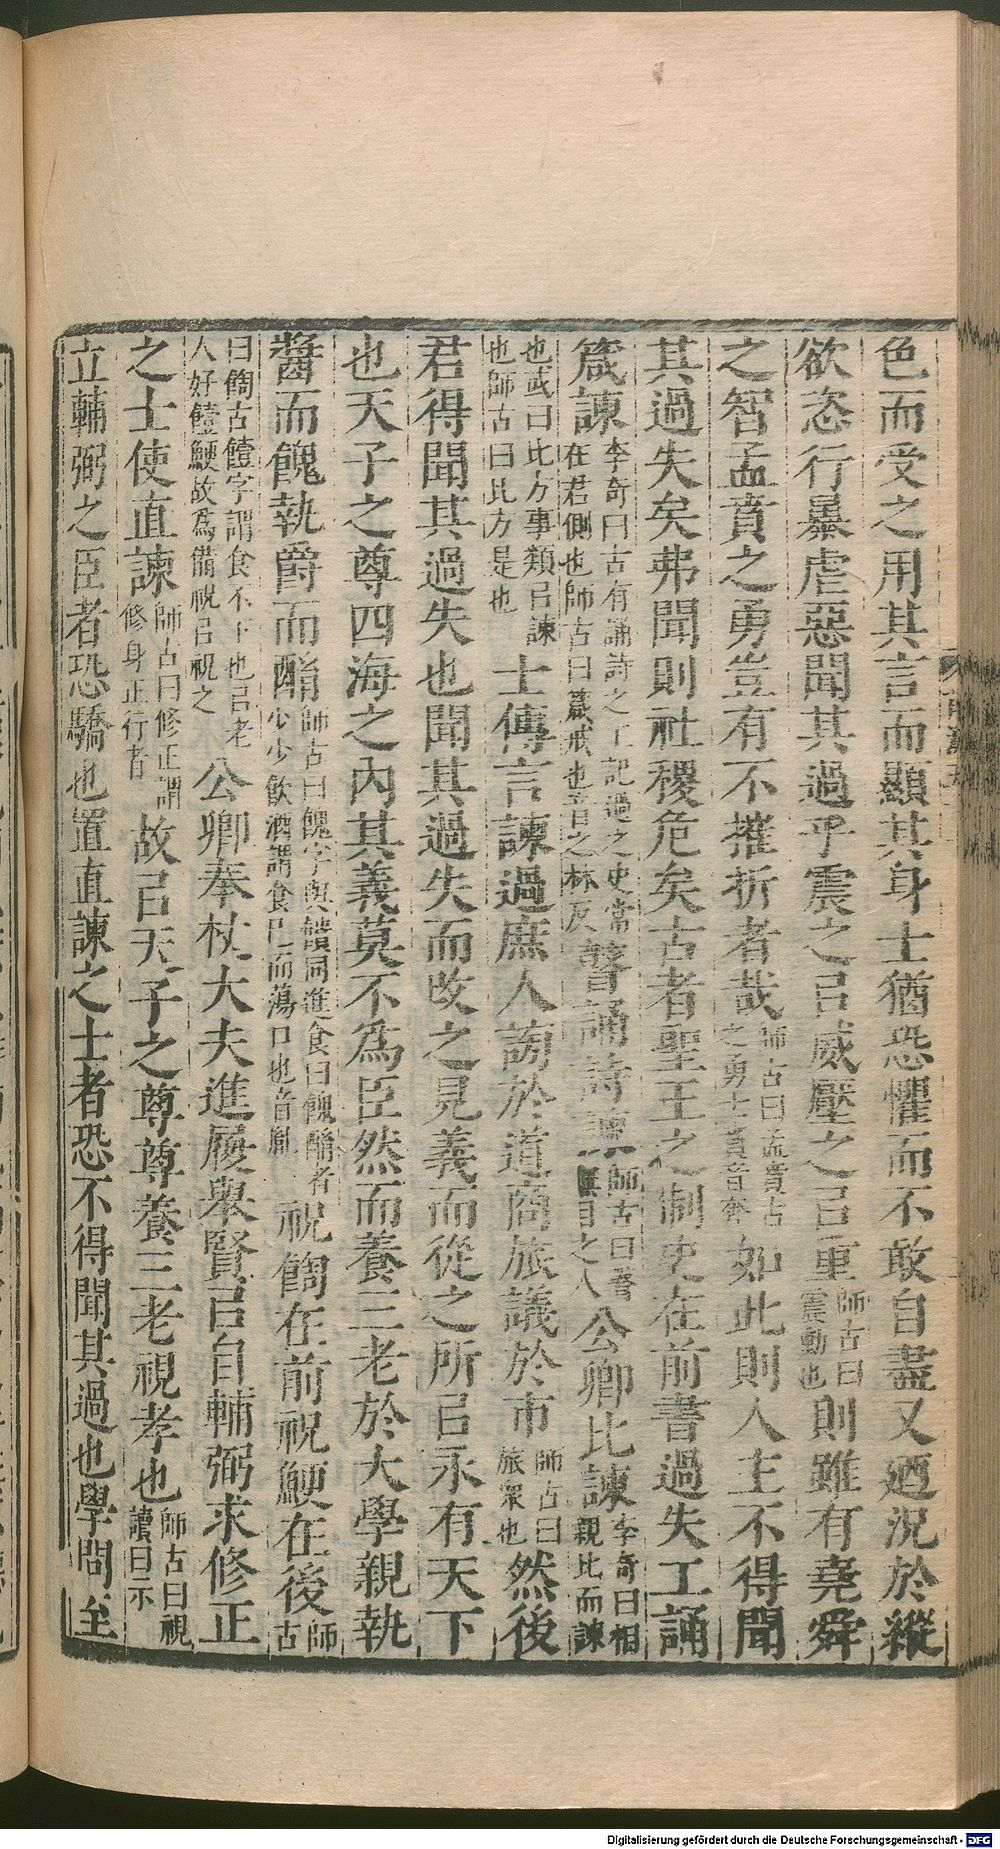 色而受之用其言而顯其身士猶恐懼而不敢自盡又廼況於縱
欲恣行暴虐惡聞其過乎震之㠯威壓之㠯重師古曰震動也則雖有堯舜
之智孟賁之勇豈有不摧折者哉師古曰孟賁古之勇士賁音奔如此則人主不得聞
其過失矣弗聞則社稷危矣古者聖王之制史在前書過失工誦
箴諫李奇曰古有誦詩之工記過之史常在君側也師古曰箴戒也音之林反瞽誦詩諫師古曰瞽無目之人公卿比諫李奇曰相親比而諫
也或曰比方事類㠯諫也師古曰比方是也士傳言諫過庶人謗於道商旅議於市師古曰旅眾也然後
君得聞其過失也聞其過失而改之見義而從之所㠯永有天下
也天子之尊四海之內其義莫不為臣然而養三老於大學親執
醬而餽執爵而酳師古曰餽字與饋同進食曰餽酳者少少飲酒謂食已而蕩口也音胤祝餶在前祝鯁在後師古
曰餶古饐字謂食不下也㠯老人好饐鯁故為備祝㠯祝之公卿奉杖大夫進履舉賢㠯自輔弼求修正
之士使直諫師古曰修正謂修身正行者故㠯天子之尊尊養三老視孝也師古曰視讀曰示
立輔弼之臣者恐驕也置直諫之士者恐不得聞其過也學問至
Digitalisierung gefördert durch die Deutsche Forschungsgemeinschaft - DFG